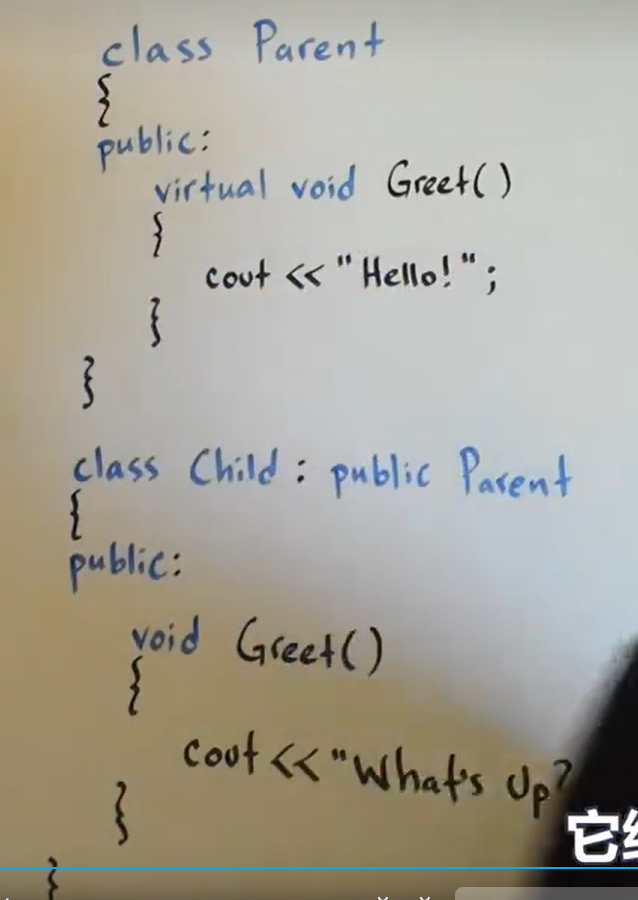 class Parent
{
public:
virtual void Greet()
{
cout << "Hello!";
}
}
class Child : public Parent
{
public:
void Greet()
{
cout << "What's Up?
}
它
}